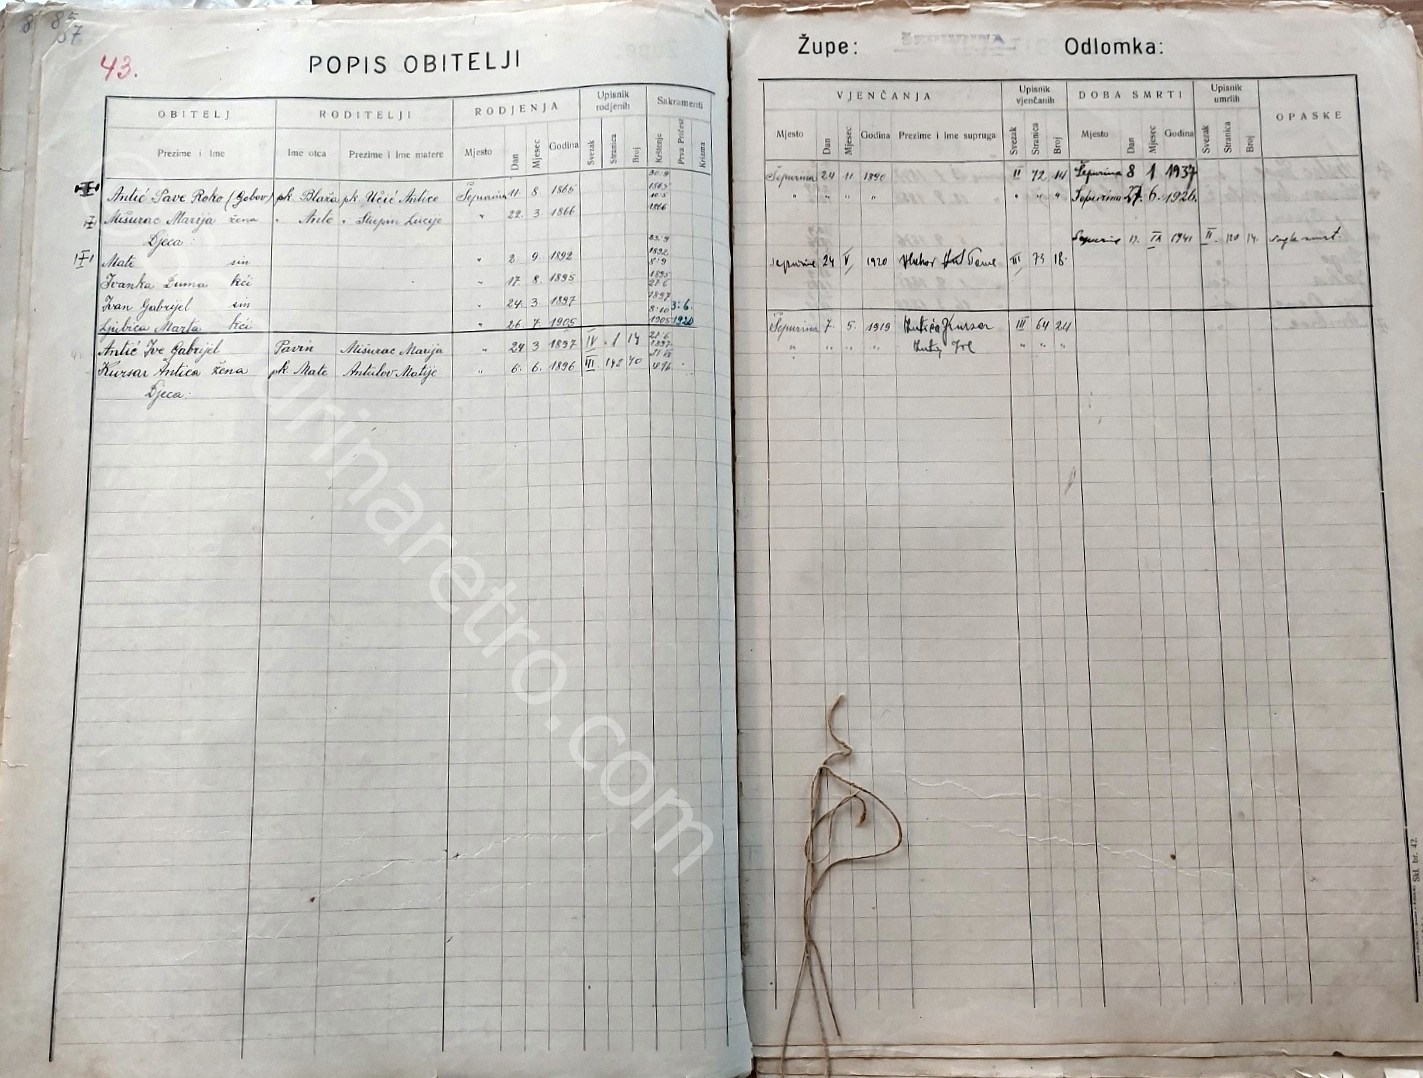 43.
POPIS OBITELJI
OBITELJ RODITELJI RODJENJA Upisnik rodjenih Sakramenti
Prezime i Ime Ime otca Prezime i Ime matere Mjesto Dan Mjesec Godina Svezak Stranica Broj Krštenje Prva Pričest Krizma
Antić Pave Roko (Gobov) pk. Blaža pk. Učić Antice Šepurina 11. 8. 1865 30.9 1865
Mišurac Marija žena " Ante " Stupin Lucije " 22. 3 1866 1866
Djeca:
Mate sin " 2. 9. 1892 1892
Ivanka Duma kći " 17. 8. 1895 8.9 1895
Ivan Gabrijel sin " 24. 3. 1897 1897
Ljubica Marta kći " 26. 7. 1905 8.10 1905 3.6. 1920
Antić Ive Gabrijel Pavin Mišurac Marija " 24 3 1897 IV 1 14 1897
Kursar Antica žena pk. Mate Antulov Matije " 6. 6. 1896 III 142 70
Djeca:
Župe: Odlomka:
VJENČANJA Upisnik vjenčanih DOBA SMRTI Upisnik umrlih OPASKE
Mjesto Dan Mjesec Godina Prezime i Ime supruga Svezak Stranica Broj Mjesto Dan Mjesec Godina Svezak Stranica Broj
Šepurina 24 11 1890 II 72 14 Šepurina 8 1 1937
" " " " " " " Šepurina 27. 6. 1926.
Šepurina 17. IX 1941 II. 120 14.
Šepurina 24 V 1920 III 73 18.
Šepurina 7. 5. 1919 Kursar III 64 24
" " " " Antić Ive " " "
drinaretro.com